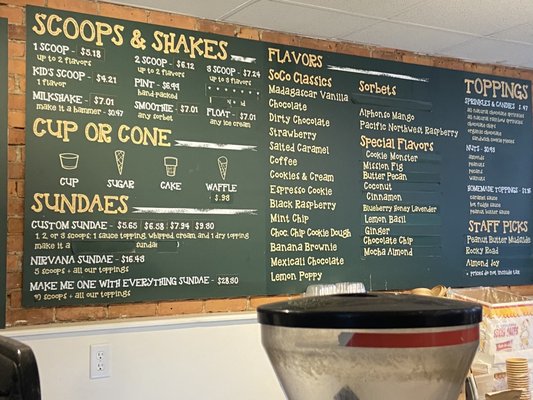 SCOOPS & SHAKES
1 SCOOP - $5.18
up to 2 flavors
2 SCOOP - $6.12
up to 2 flavors
3 SCOOP - $7.24
up to 3 flavors
KID'S SCOOP - $4.21
1 flavor
PINT - $6.99
hand packed
MILKSHAKE - $7.01
make it a hammer - $0.47
SMOOTHIE - $7.01
any sorbet
FLOAT - $7.01
any ice cream
CUP OR CONE
CUP
SUGAR
CAKE
WAFFLE
$.98
SUNDAES
CUSTOM SUNDAE - $5.65 $6.58 $7.94 $9.80
1, 2, or 3 scoops, 1 sauce topping, whipped cream, and 1 dry topping
make it a
sundae
NIRVANA SUNDAE - $16.48
5 scoops + all our toppings
MAKE ME ONE WITH EVERYTHING SUNDAE - $28.80
9 scoops + all our toppings
FLAVORS
SoCo Classics
Madagascar Vanilla
Chocolate
Dirty Chocolate
Strawberry
Salted Caramel
Coffee
Cookies & Cream
Espresso Cookie
Black Raspberry
Mint Chip
Choc. Chip Cookie Dough
Banana Brownie
Mexicali Chocolate
Lemon Poppy
Sorbets
Alphonso Mango
Pacific Northwest Raspberry
Special Flavors
Cookie Monster
Mission Fig
Butter Pecan
Coconut
Cinnamon
Blueberry Honey Lavender
Lemon Basil
Ginger
Chocolate Chip
Mocha Almond
TOPPINGS
SPRINKLES & CANDIES $ .47
all natural chocolate sprinkles
all natural rainbow sprinkles
chocolate chip
organic chocolate
sandwich cookie pieces
NUTS -
almonds
peanuts
pecans
walnuts
HOMEMADE TOPPINGS -
caramel sauce
hot fudge sauce
peanut butter sauce
STAFF PICKS
Peanut Butter Mudslide
Rocky Road
Almond Joy
* prices do not include tax